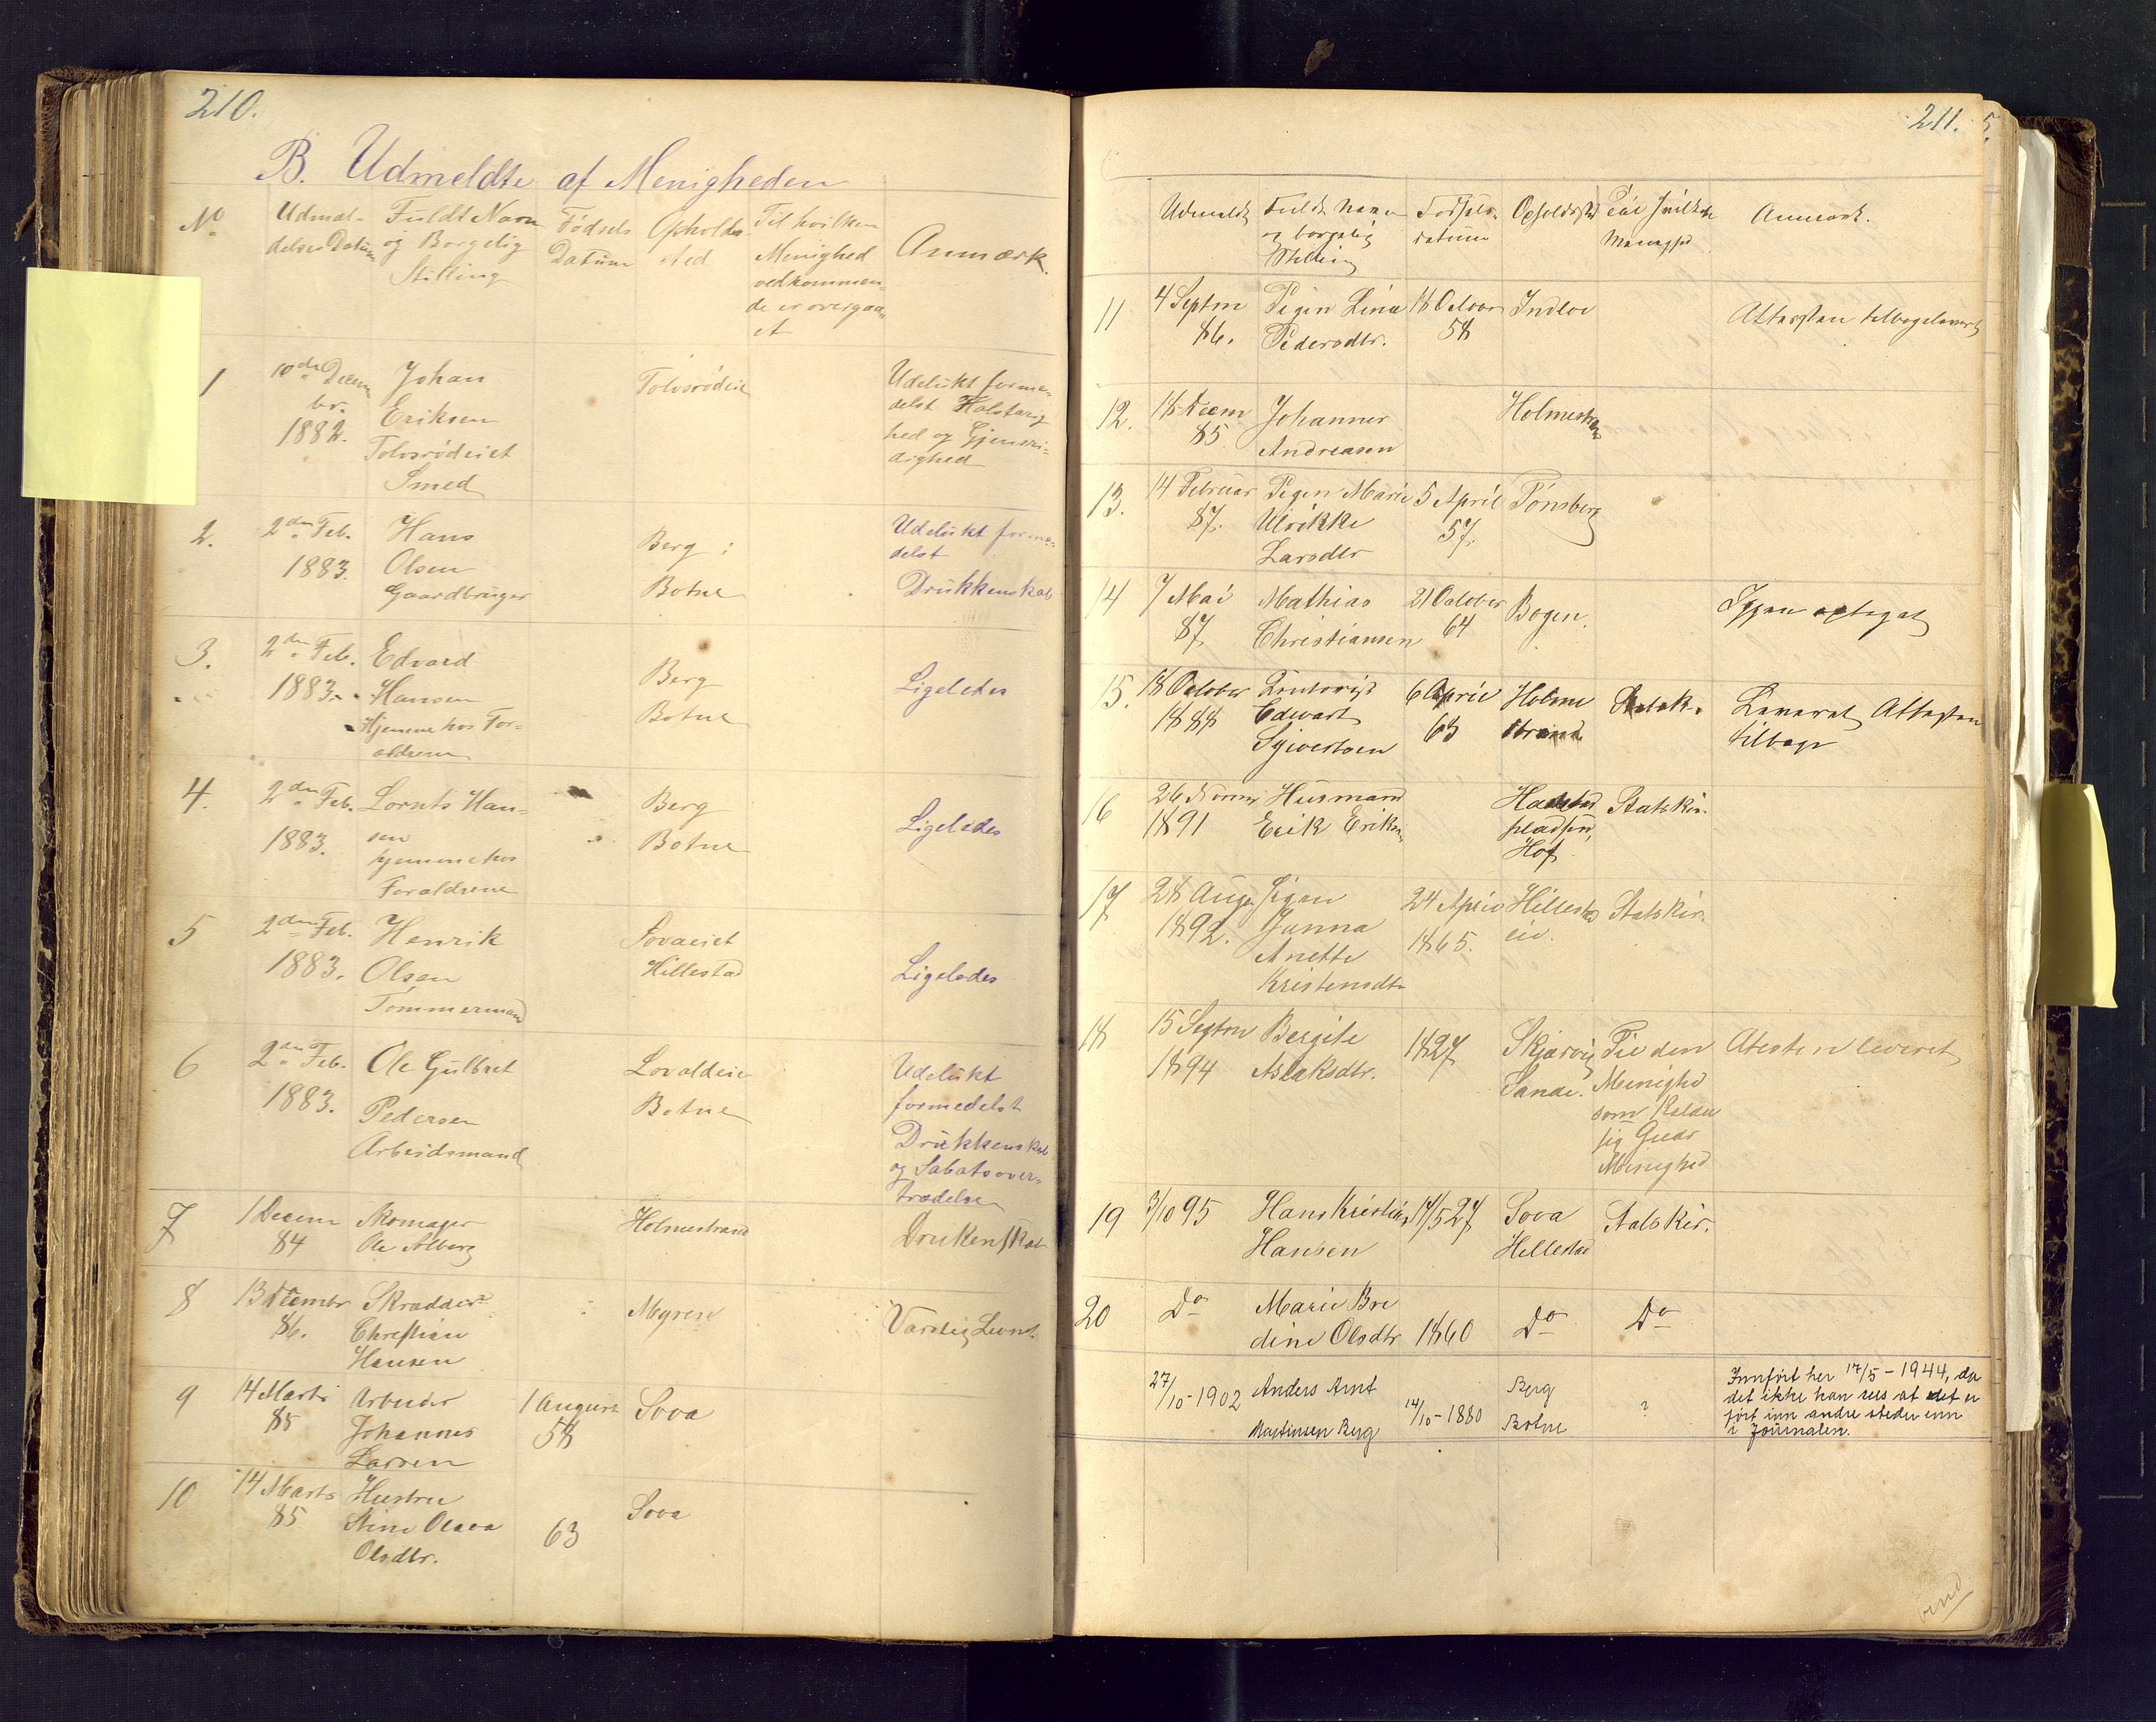 210.
B. Udmeldte af Menigheden
No
Udmel-
delses Datum
Fuldt Navn
og Borgelig
Stilling
Fødsels
Datum
Opholds-
sted
Til hvilken
Menighed
vedkommen-
de er overgaa-
et
Anmærk.
1
10de Decem
br.
1882.
Johan
Eriksen
Tolvsrødeiet
Smed
Tolvsrødeie
Udelukt forme-
delst Halstarig
hed og Gjenstri-
dighed
2.
2den Feb.
1883.
Hans
Olsen
Gaardbruger
Berg i
Botne
Udelukt forme-
delst
Drukkenskab
3.
2den Feb.
1883.
Edvard
Hansen
Hjemme hos For-
ældrene
Berg
Botne
Ligeledes
4.
2den Feb.
1883.
Lornts Han-
sen
hjemme hos
Forældrene
Berg
Botne
Ligeledes
5
2den Feb.
1883.
Henrik
Olsen
Tømmermand
Sovaeiet
Hillestad
Ligeledes
6
2den Feb.
1883.
Ole Gulbret
Pedersen
Arbeidsmand
Lovaldeie
Botne
Udelukt
formedelst
Drukkenskab
og Sabatsover-
trædelse
7
1 Decem
84
Skomager
Ole Solberg
Holmestrand
Drukenskab
8
13 Decembr
86.
Skrædder
Christian
Hansen
Myrene
9
14 Marts
85
Arbeider
Johannes
Larsen
1 August
58
Sova
10
14 Marts
85
Hustru
Stine Olava
Olsdtr.
63
Sova
211. 5.
Udmeldt
Fuldt Navn
og borgelig
Stilling
Fødsels-
datum
Opholdsted
Til hvilken
Menighed
Anmærk.
11
4 Septm
86.
Pigen Lina
Pedersdtr.
18 October
58
Indloe
Attesten tilbageleveret
12.
18 Decem
85
Johannes
Andreasen
Holmestrand
13.
14 Februar
87.
Pigen Marie
Ulrikke
Larsdtr
5 April
57.
Tønsberg
14
7 Mai
87.
Mathias
Christiansen
21 October
64
Bogen.
Igjen optaget
15.
18 October
1888
Kontorist
Edvart
Syvertsen
6 April
63
Holme
strand
Statsk.
Leveret Attesten
tilbage
16
26 Novem
1891
Husmand
Erik Eriksen
pladsen,
Hof
Statskir.
17
28 Aug.
1892.
Pigen
Gunna
Anette
Kristensdtr
24 April
1865.
Hillestad
eie.
Statskir.
18
15 Septem
1894
Bergite
Aslaksdtr.
1827
Skjærvig
Sande.
Til den
Menighed
som kalder
sig Guds
Menighed
Atesten leveret
19
3/10 95
Hans Kristian
Hansen
14/5 27
Sova
Hillestad
Statskir.
20
Do
Marie Bre
dine Olsdtr
1860
Do
Do
27/10-1902
Anders Arnt
Martinsen Berg
14/10-1880
Berg
Botne
?
Innført her 17/5-1944, da
det ikke kan sees at det er
ført inn andre steder enn
i Journalen.
vend